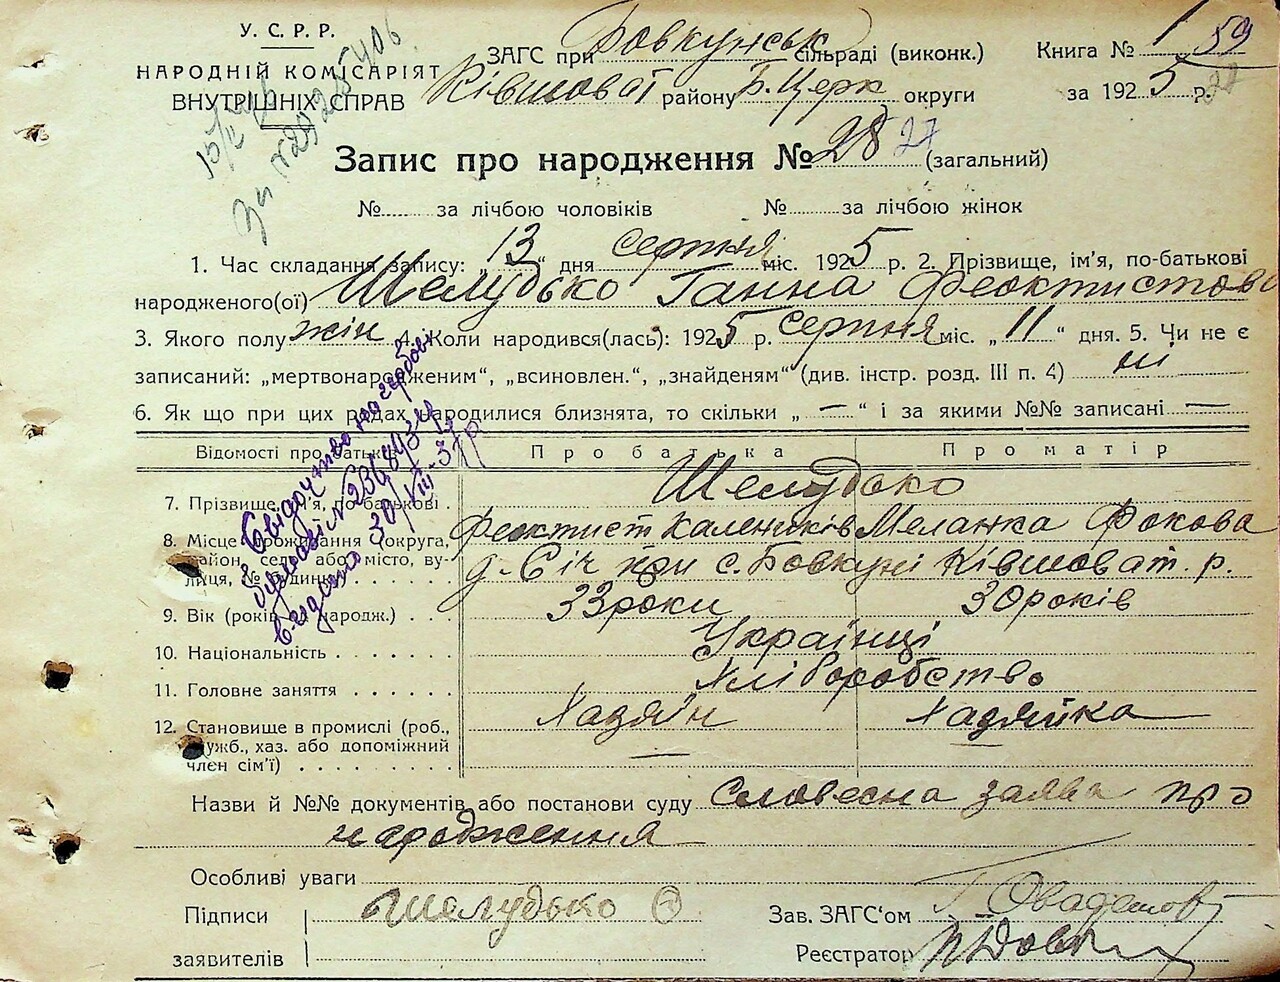 У. С. Р. Р.
НАРОДНІЙ КОМІСАРІЯТ
ВНУТРІШНІХ СПРАВ
ЗАГС при Бовкунськ сільраді (виконк.) Книга № 1 59
Ківшоват району Б. Церк округи за 1925 р.
Запис про народження № 28 27 (загальний)
№ за лічбою чоловіків № за лічбою жінок
1. Час складання запису: „13“ дня серпня міс. 1925 р. 2. Прізвище, ім'я, по-батькові
народженого(ої) Шелудько Ганна Феоктистова
3. Якого полу жін 4. Коли народився(лась): 1925 р. серпня міс. „11“ дня. 5. Чи не є
записаний: „мертвонародженим“, „всиновлен.“, „знайденям“ (див. інстр. розд. III п. 4) ні
6. Як що при цих родах народилися близнята, то скільки „—“ і за якими №№ записані —
Відомості про батьків Про батька Про матір
7. Прізвище, ім'я, по-батькові . Шелудько
Феоктист Калеників Меланка Фокова
8. Місце проживання (округа, район, село або місто, вулиця, № будинку) д. Січ при с. Бовкуні Ківшоват. р.
9. Вік (років з народж.) . . . 33 роки 30 років
10. Національність . . . . . . Українці
11. Головне заняття . . . . . . Хліборобство
12. Становище в промислі (роб., служб., хаз. або допоміжний член сім'ї) . . . . . . . . Хазяїн Хазяйка
Назви й №№ документів або постанови суду Словесна заява про
народження
Особливі уваги
Підписи Шелудько Зав. ЗАГС'ом
заявителів Реєстратор
15/II
За №
Свідоцтво по
видано 30/VIII-37р.